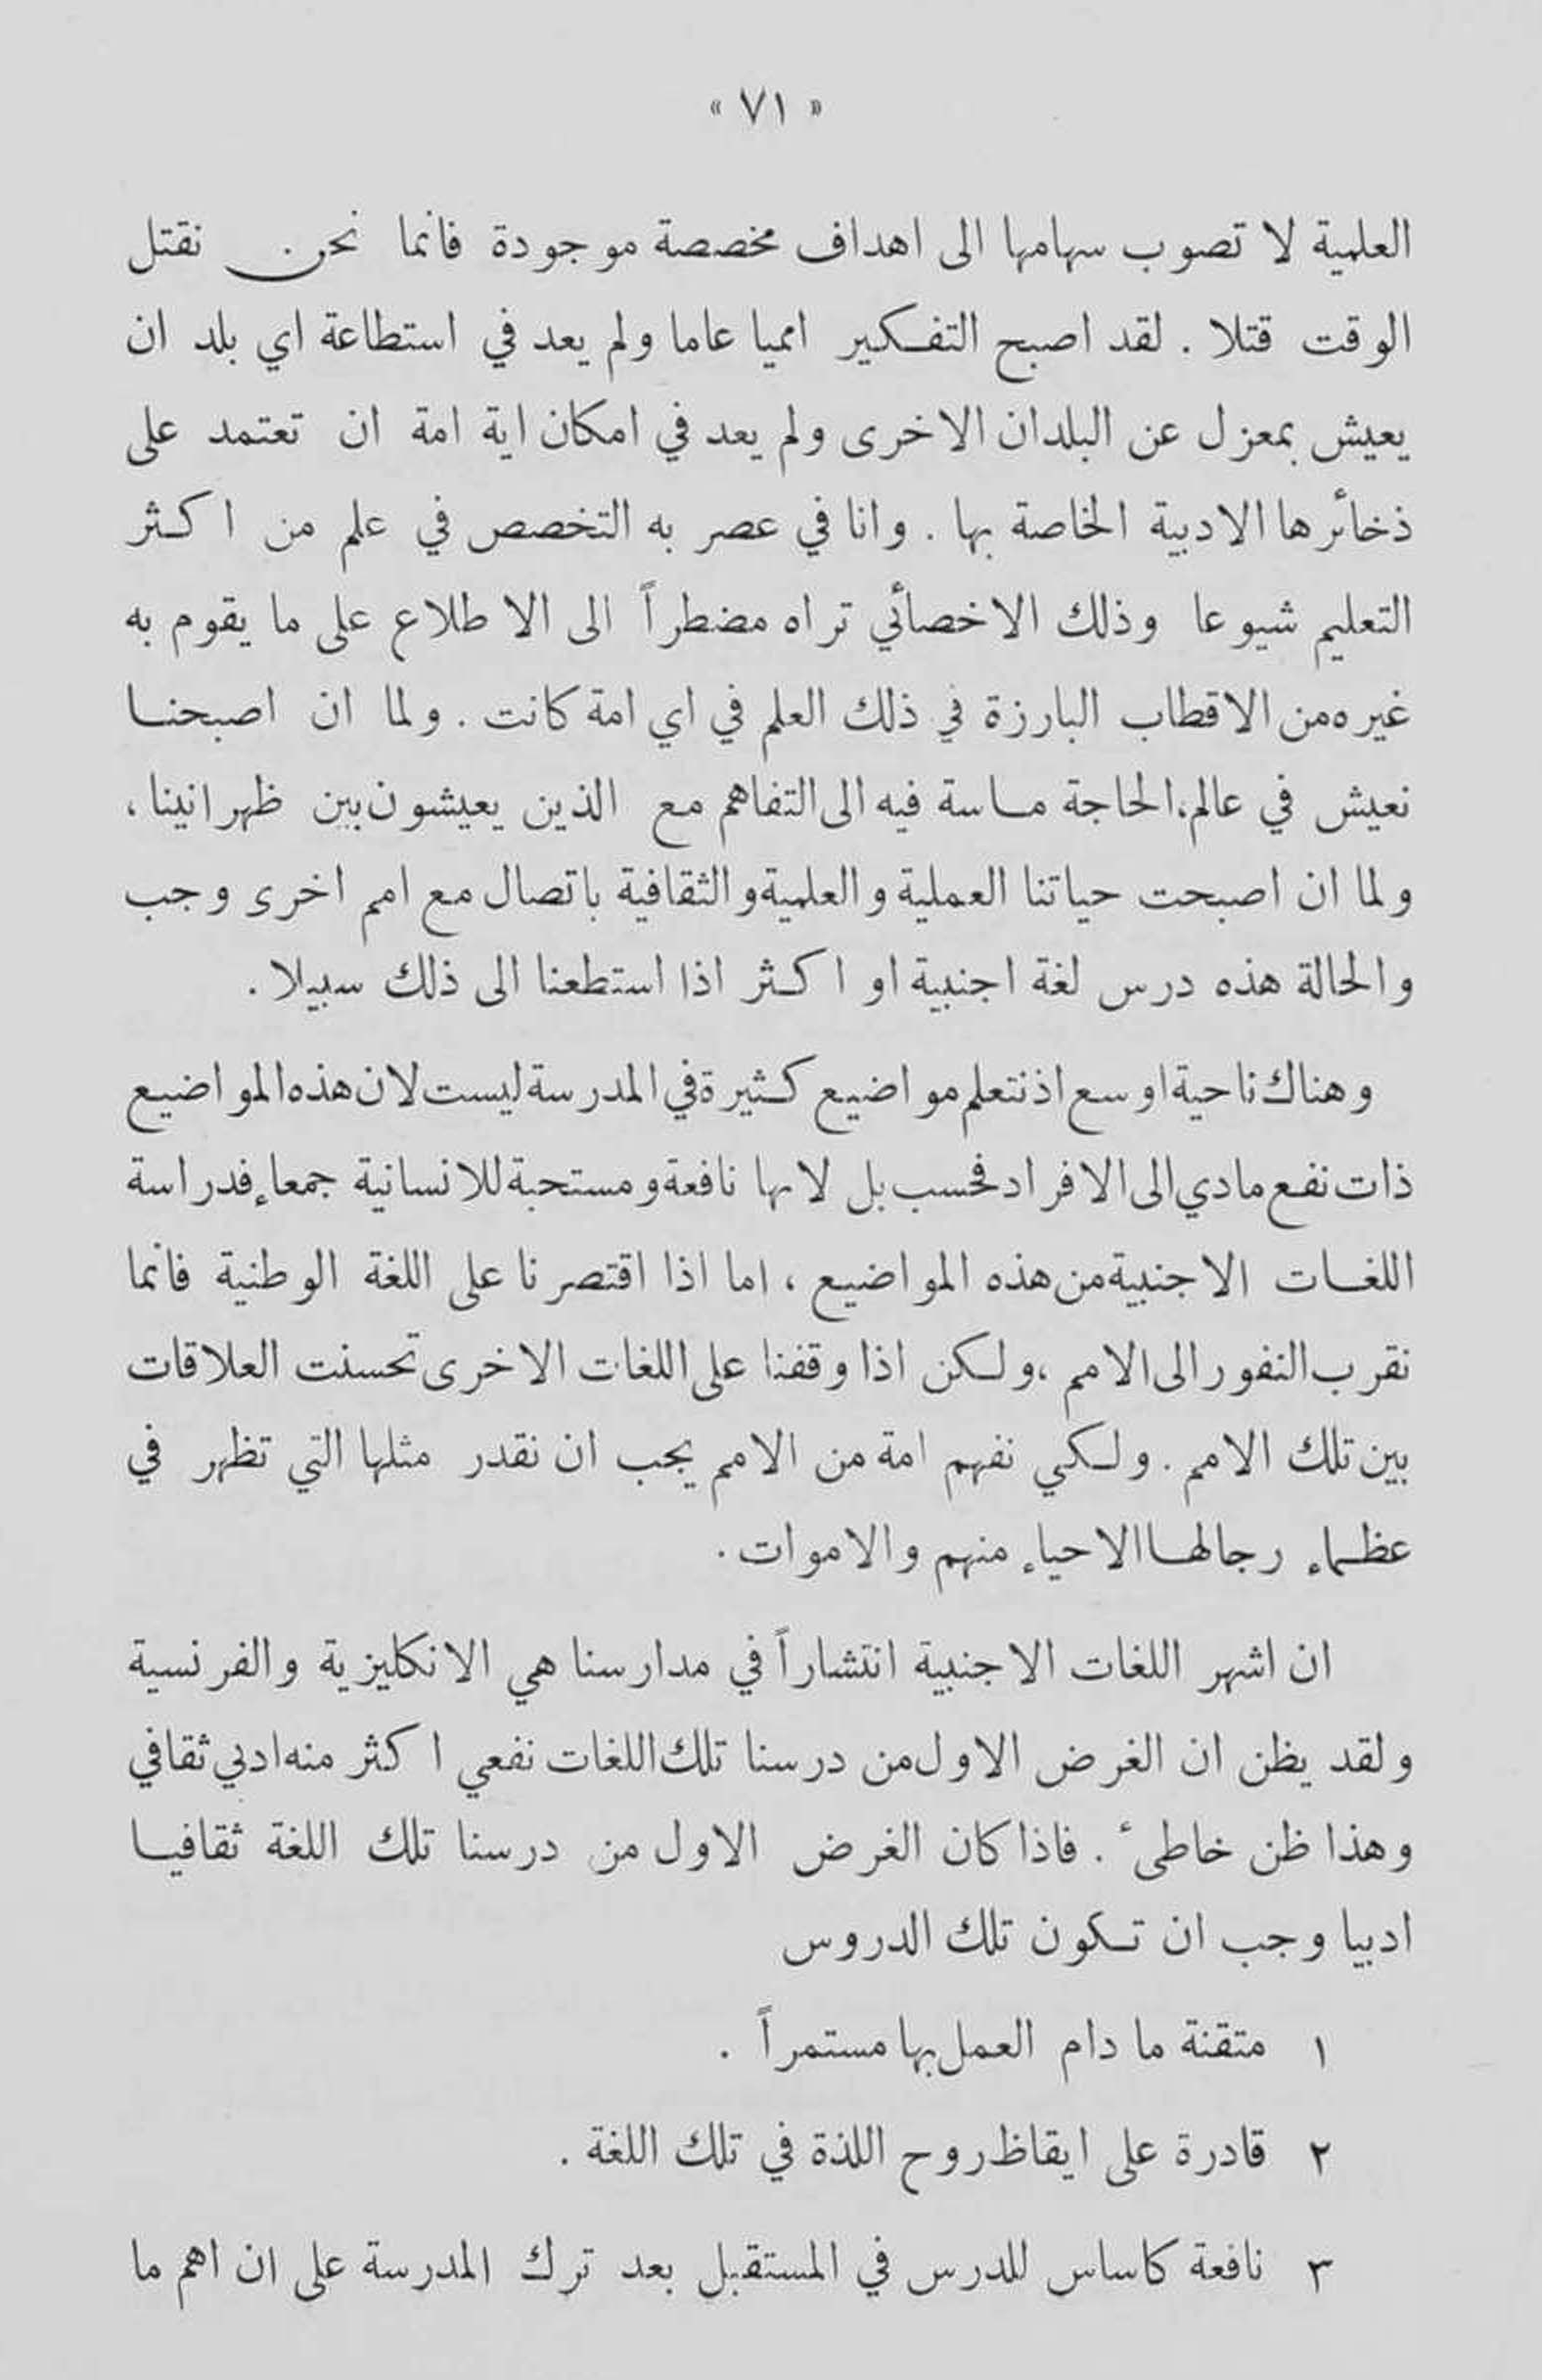 « ٧١ »
العلمية لا تصوب سهامها الى اهداف مخصصة موجودة فانما نحن نقتل
الوقت قتلا . لقد اصبح التفكير امميا عاما ولم يعد في استطاعة اي بلد ان
يعيش بمعزل عن البلدان الاخرى ولم يعد في امكان اية امة ان تعتمد على
ذخائرها الادبية الخاصة بها . وانا في عصر به التخصص في علم من اكثر
التعليم شيوعا وذلك الاخصائي تراه مضطراً الى الاطلاع على ما يقوم به
غيره من الاقطاب البارزة في ذلك العلم في اي امة كانت . ولما ان اصبحنا
نعيش في عالم، الحاجة ماسة فيه الى التفاهم مع الذين يعيشون بين ظهرانينا ،
ولما ان اصبحت حياتنا العملية والعلمية والثقافية باتصال مع امم اخرى وجب
والحالة هذه درس لغة اجنبية او اكثر اذا استطعنا الى ذلك سبيلا .
وهناك ناحية اوسع اذ نتعلم مواضيع كثيرة في المدرسة ليست لان هذه المواضيع
ذات نفع مادي الى الافراد فحسب بل لانها نافعة ومستحبة للانسانية جمعاء فدراسة
اللغات الاجنبية من هذه المواضيع ، اما اذا اقتصرنا على اللغة الوطنية فانما
نقرب النفور الى الامم ، ولكن اذا وقفنا على اللغات الاخرى تحسنت العلاقات
بين تلك الامم . ولكي نفهم امة من الامم يجب ان نقدر مثلها التي تظهر في
عظماء رجالها الاحياء منهم والاموات .
ان اشهر اللغات الاجنبية انتشاراً في مدارسنا هي الانكليزية والفرنسية
ولقد يظن ان الغرض الاول من درسنا تلك اللغات نفعي اكثر منه ادبي ثقافي
وهذا ظن خاطىء . فاذا كان الغرض الاول من درسنا تلك اللغة ثقافيا
ادبيا وجب ان تكون تلك الدروس
١ متقنة ما دام العمل بها مستمراً .
٢ قادرة على ايقاظ روح اللذة في تلك اللغة .
٣ نافعة كاساس للدرس في المستقبل بعد ترك المدرسة على ان اهم ما